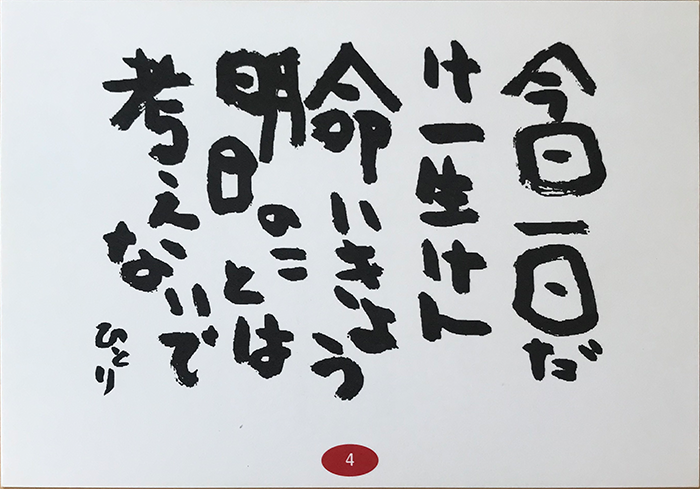 今日一日だ
け一生けん
命いきよう
明日のことは
考えないで
ひとり
4